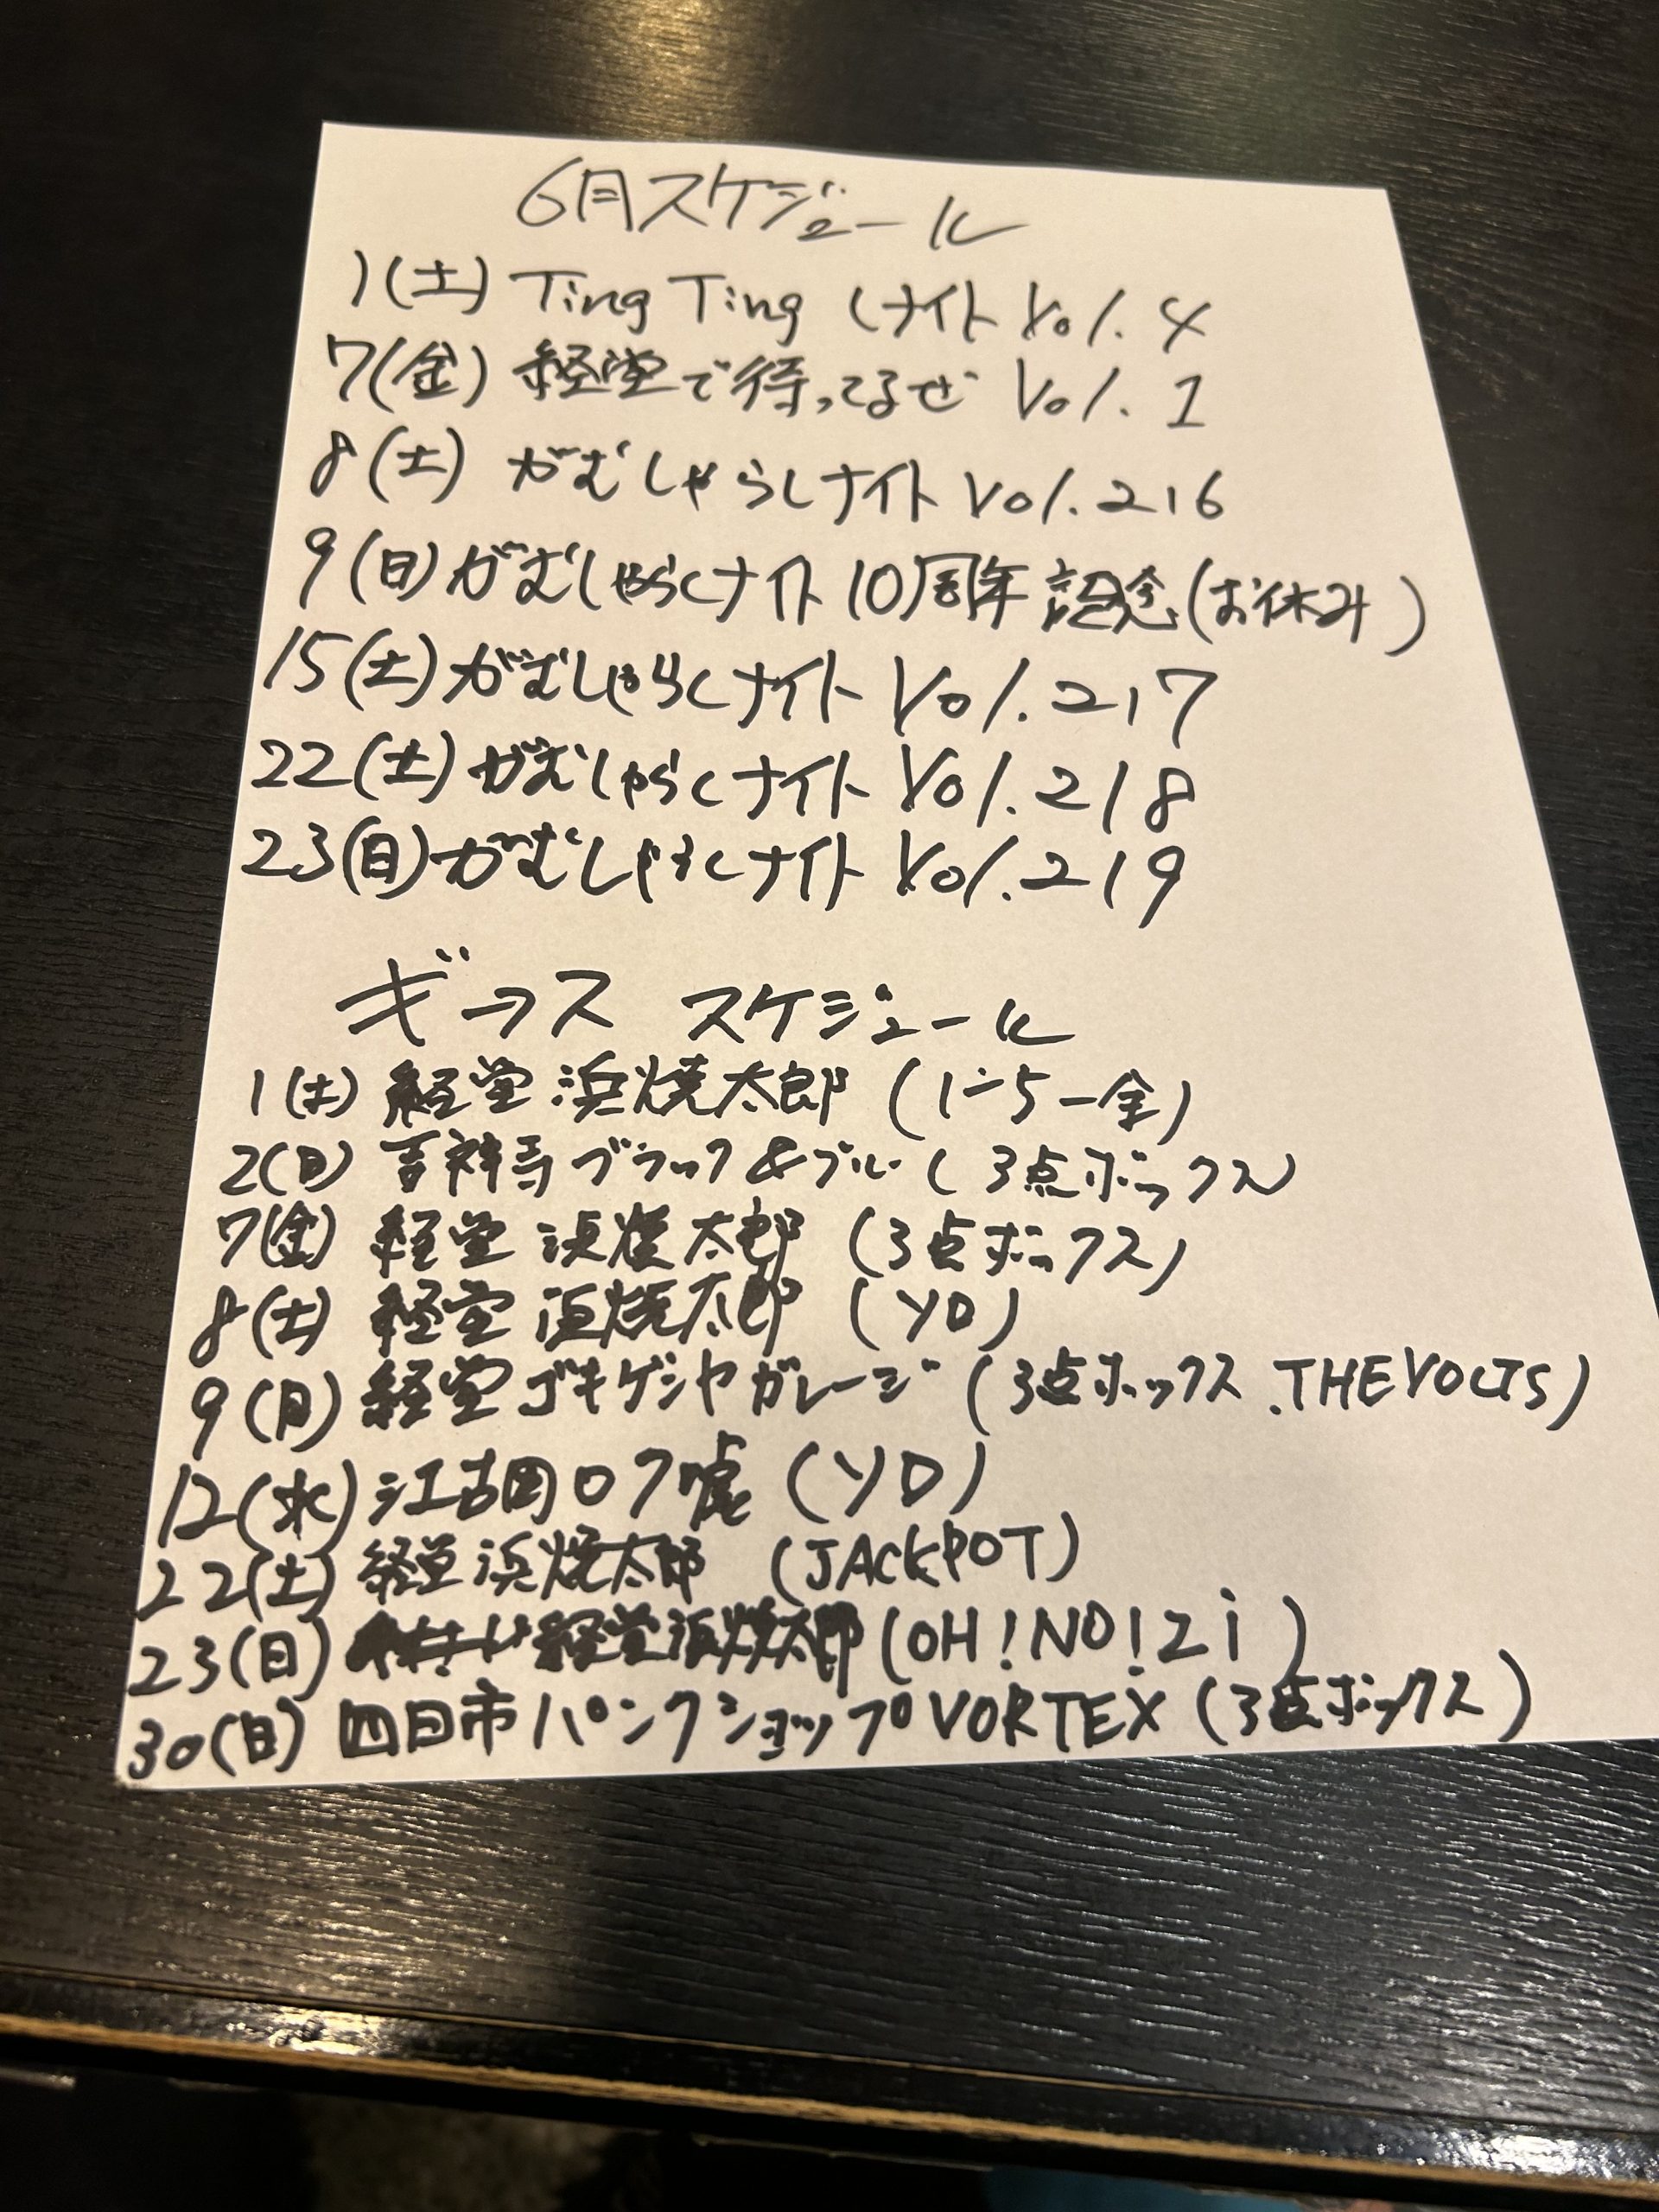 6月スケジュール
1(土) Ting Ting しナイト Vol.4
7(金) 経堂で待ってるぜ Vol.1
8(土) がむしゃらしナイト Vol.216
9(日)がむしゃらしナイト10周年記念(お休み)
15(土)がむしゃらしナイト Vol.217
22(土)がむしゃらしナイト Vol.218
23(日)がむしゃらしナイト Vol.219
ギラス スケジュール
1(土) 経堂 浜焼太郎 (1-5-金)
2(日) 吉祥寺 ブラック&ブルー(3点ボックス)
7(金) 経堂 浜焼太郎 (3点ボックス)
8(土) 経堂 浜焼太郎 (YD)
9(月) 経堂ゴキゲンヤガレージ(3点ボックス.THEVOLTS)
12(水)江古田(YD)
22(土) 経堂浜焼太郎 (JACKPOT)
23(日) 経堂浜焼太郎(OH!NO!Zi)
30(日) 四日市パンクショップVORTEX(3点ボックス)